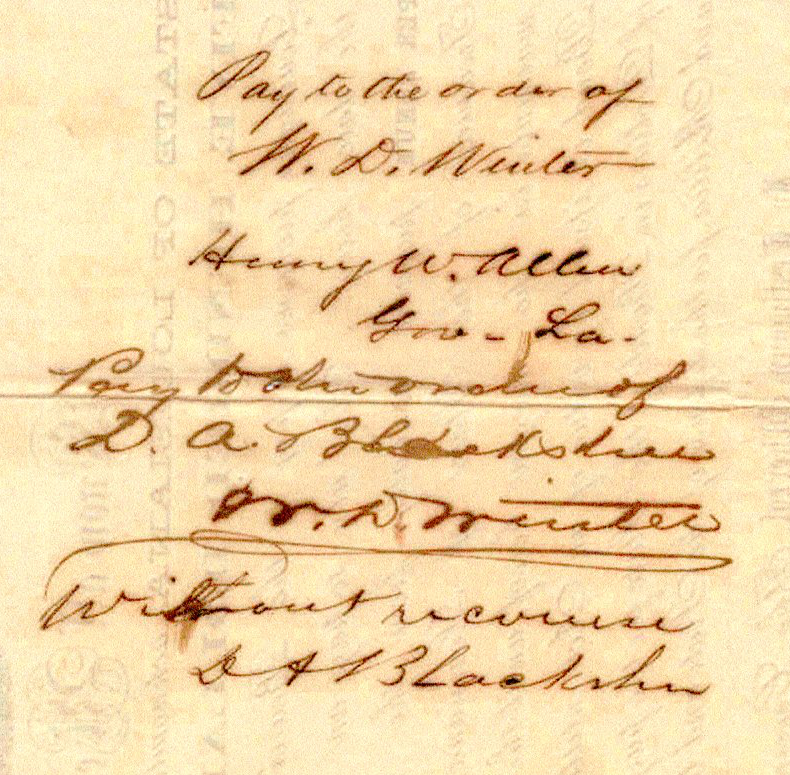 Pay to the order of
W. D. Winter
Henry W. Allen
Gov - La.
Pay to the order of
D. A. Blackshear
W. D. Winter
Without recourse
D A Blackshear